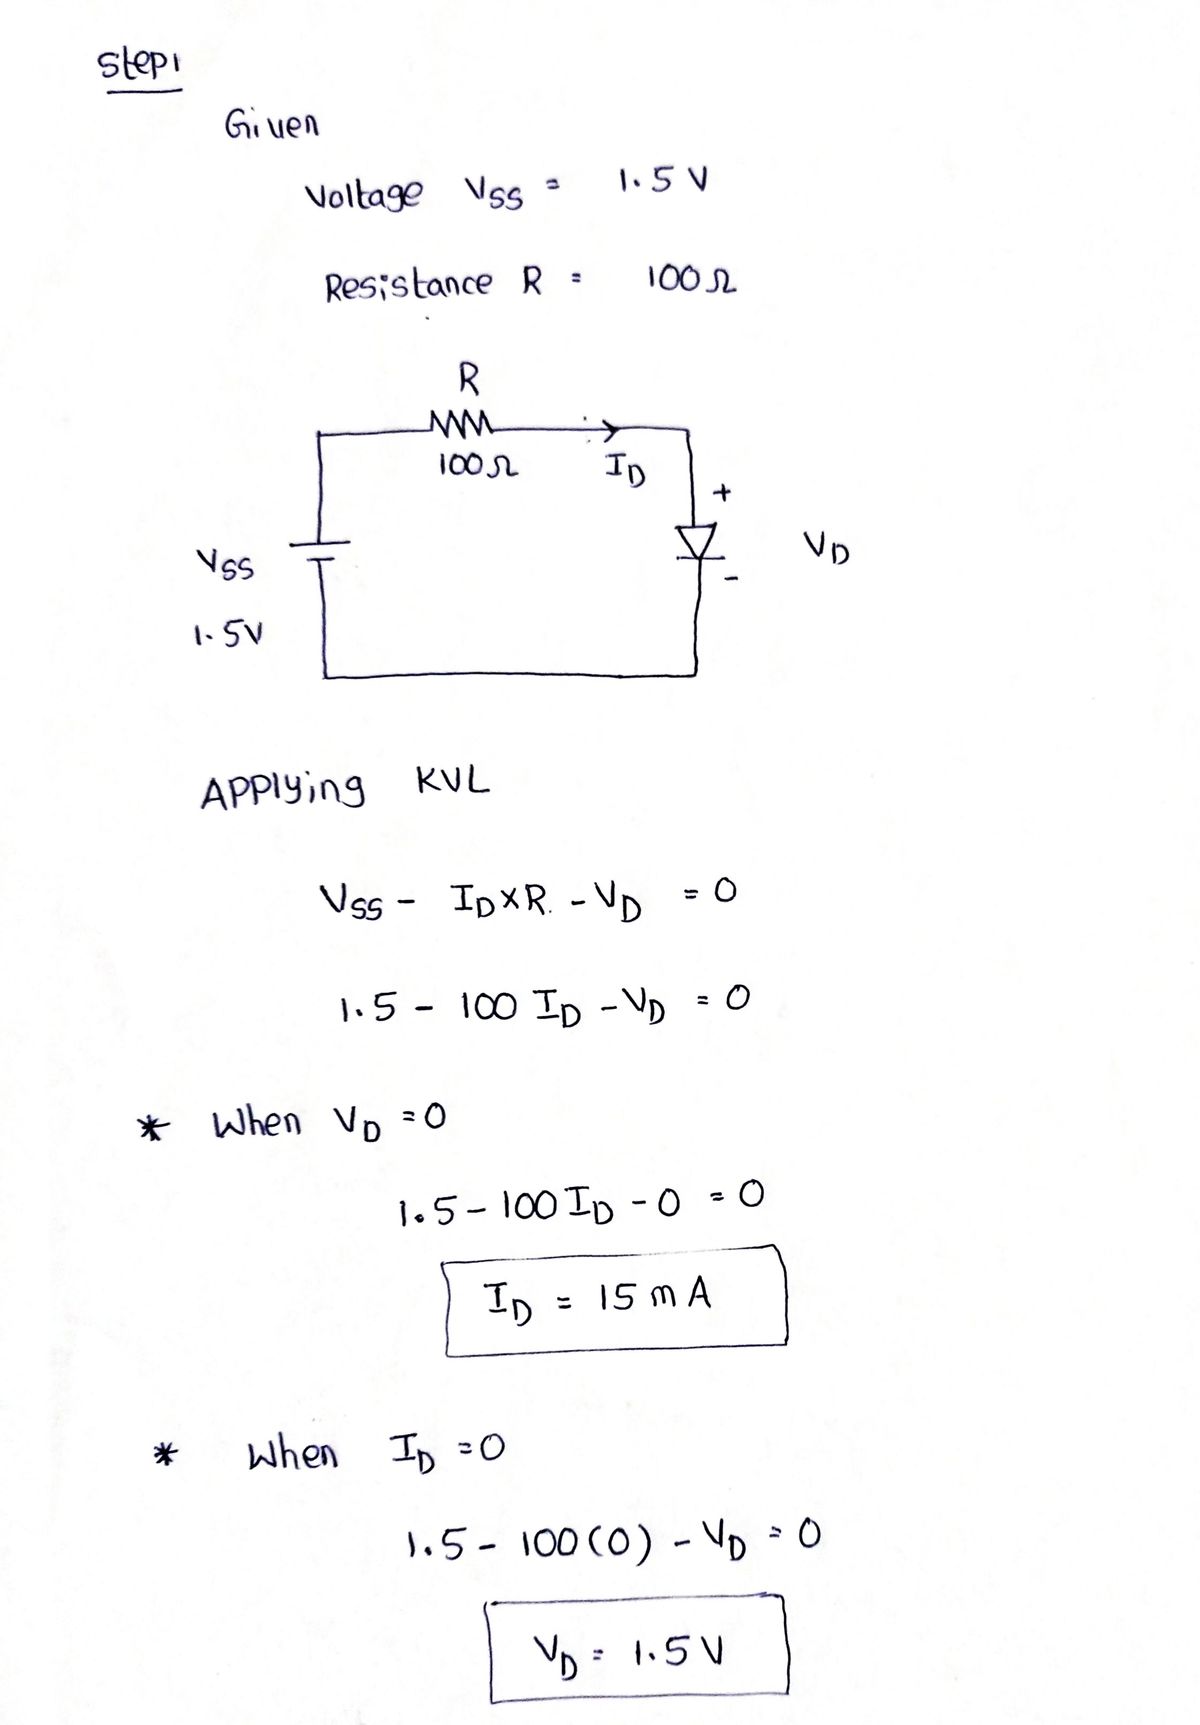 Step1
Given
Voltage VSS = 1.5 V
Resistance R = 100 Ω
R
100 Ω
ID
+
VSS
VD
-
1.5V
APPlying KVL
VSS - ID×R. - VD = 0
1.5 - 100 ID - VD = 0
* When VD = 0
1.5 - 100 ID - 0 = 0
ID = 15 mA
* When ID = 0
1.5 - 100 (0) - VD = 0
VD = 1.5 V